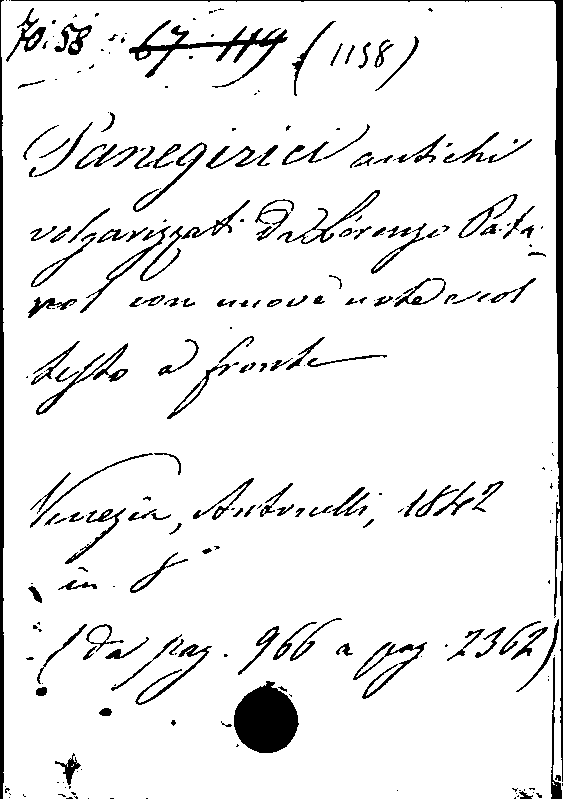 70.58 67.119 (1158)
Panegirici antichi
volgarizzati da Lorenzo Pata-
rol con nuove note e col
testo a fronte
Venezia, Antonelli, 1842
in 8°
(da pag. 966 a pag. 2362)